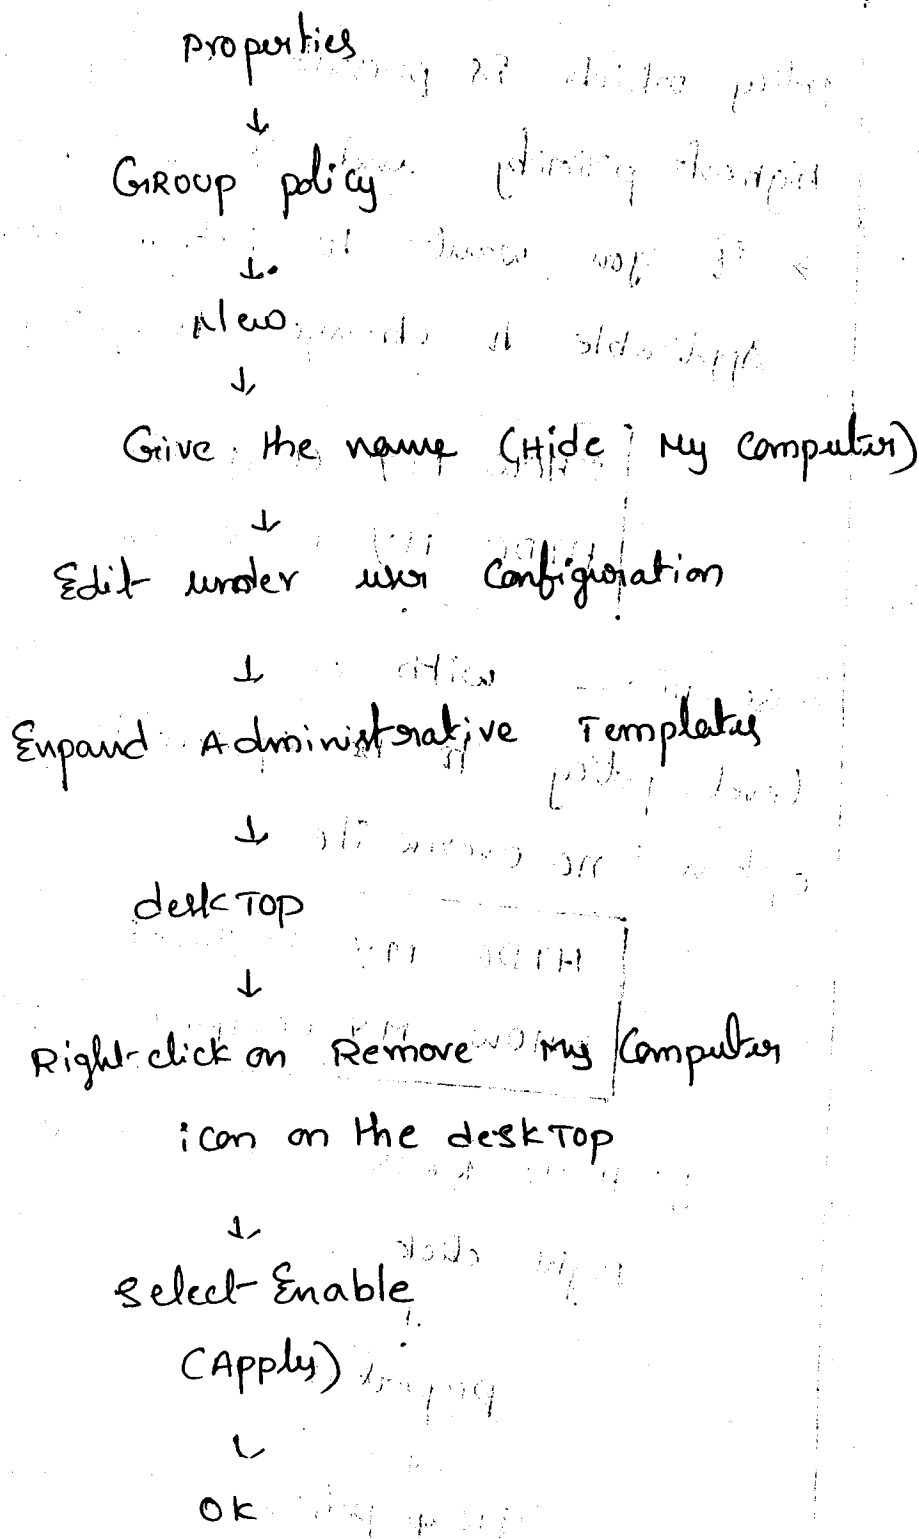 Properties
↓
GROUP policy
↓
New
↓
Give the name (Hide My Computer)
↓
Edit under user Configuration
↓
Expand Administrative Templates
↓
deskTOP
↓
Right-click on Remove My Computer
icon on the deskTOP
↓
Select Enable
(Apply)
↓
OK